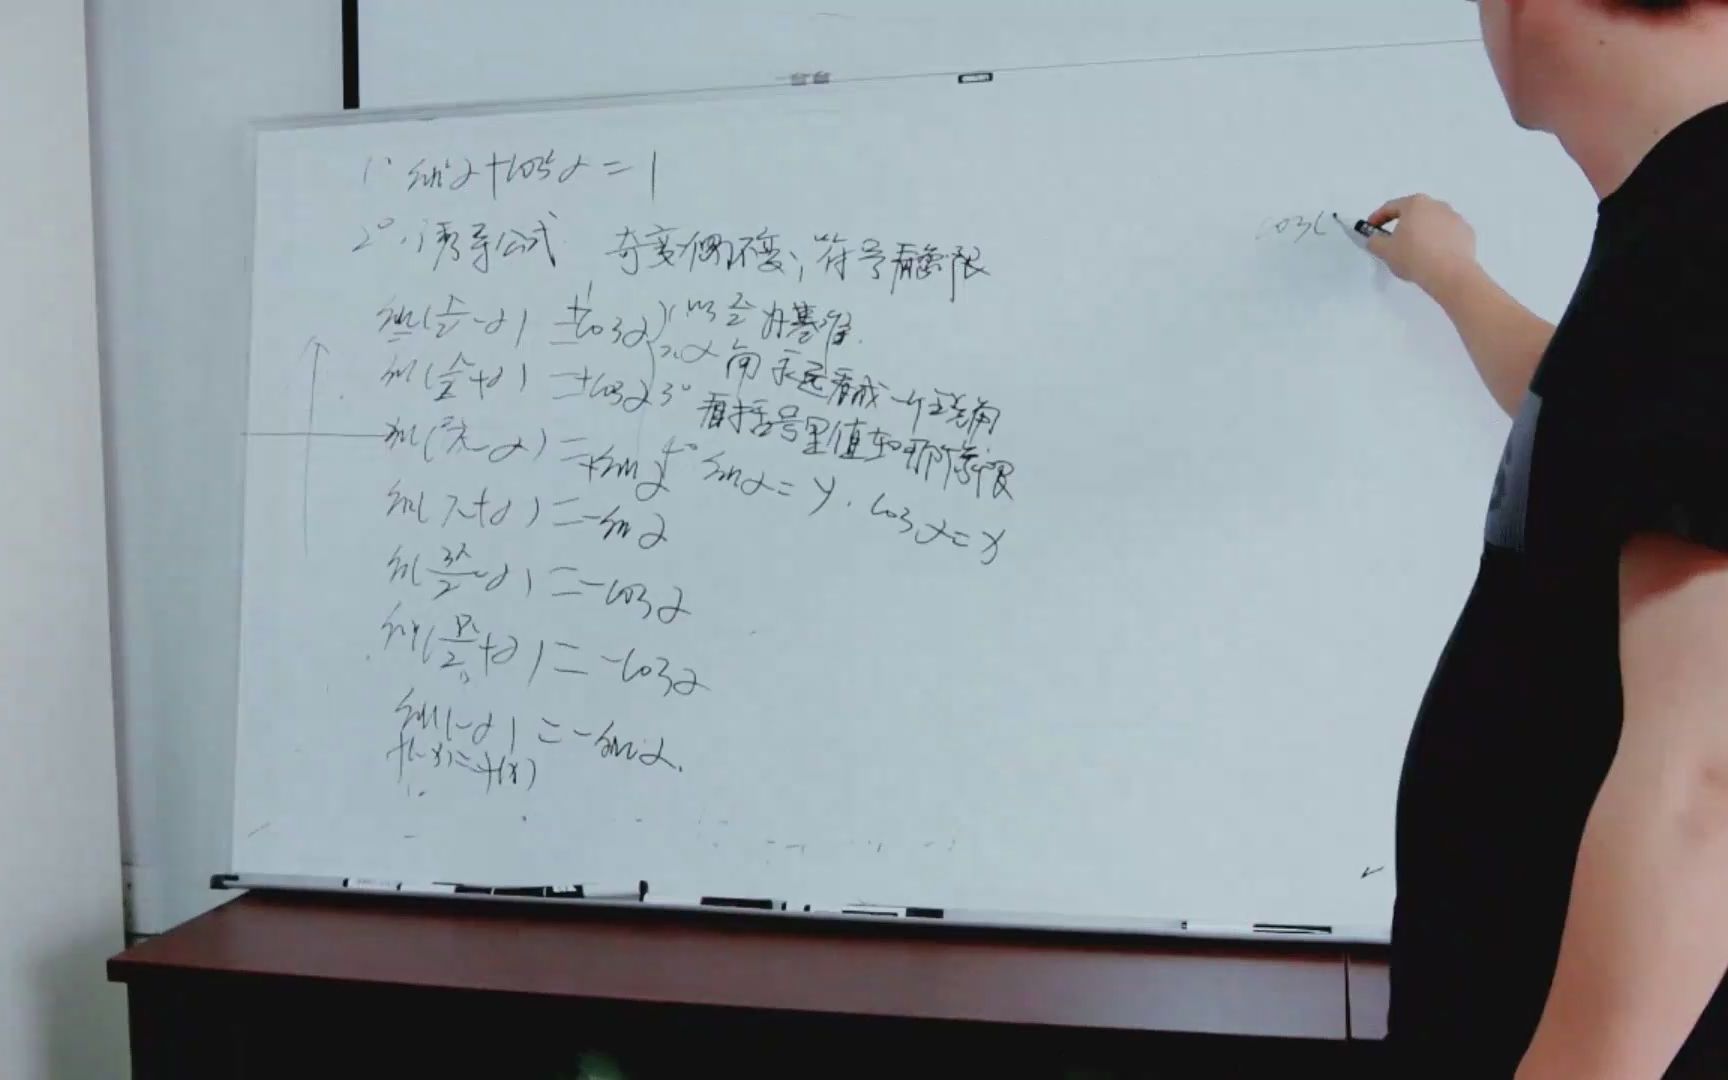 1° sin²α+cos²α=1
2°.诱导公式 奇变偶不变,符号看象限
sin(π/2-α)=+cosα 1°以π/2为基准.
sin(π/2+α)=+cosα 2°α角永远看成一个锐角
sin(π-α)=+sinα 3°看括号里值在哪个象限
sin(π+α)=-sinα 4° sinα=y.cosα=x
sin(3π/2-α)=-cosα
sin(3π/2+α)=-cosα
sin(-α)=-sinα.
f(-x)=-f(x)
cos(